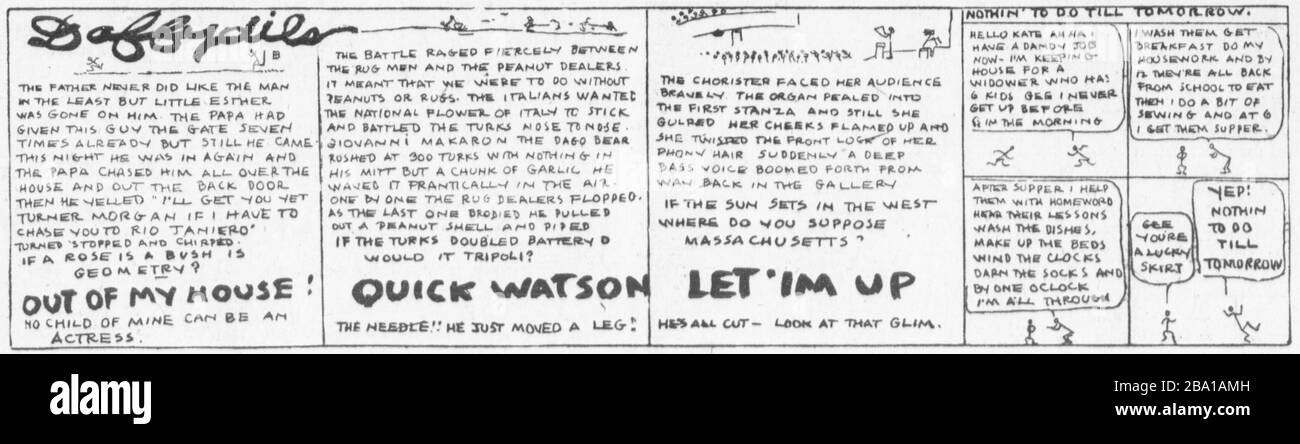 Daffydils
B
THE FATHER NEVER DID LIKE THE MAN
IN THE LEAST BUT LITTLE ESTHER
WAS GONE ON HIM. THE PAPA HAD
GIVEN THIS GUY THE GATE SEVEN
TIMES ALREADY BUT STILL HE CAME
THIS NIGHT HE WAS IN AGAIN AND
THE PAPA CHASED HIM ALL OVER THE
HOUSE AND OUT THE BACK DOOR
THEN HE YELLED "I'LL GET YOU YET
TURNER MORGAN IF I HAVE TO
CHASE YOU TO RIO JANIERO"
TURNED STOPPED AND CHIRPED.
IF A ROSE IS A BUSH IS
GEOMETRY?
OUT OF MY HOUSE!
NO CHILD OF MINE CAN BE AN
ACTRESS.
THE BATTLE RAGED FIERCELY BETWEEN
THE RUG MEN AND THE PEANUT DEALERS.
IT MEANT THAT WE WERE TO DO WITHOUT
PEANUTS OR RUGS. THE ITALIANS WANTED
THE NATIONAL FLOWER OF ITALY TO STICK
AND BATTLED THE TURKS NOSE TO NOSE.
GIOVANNI MAKARON THE DAGO BEAR
RUSHED AT 300 TURKS WITH NOTHING IN
HIS MITT BUT A CHUNK OF GARLIC HE
WAVED IT FRANTICALLY IN THE AIR.
ONE BY ONE THE RUG DEALERS FLOPPED.
AS THE LAST ONE BRODIED HE PULLED
OUT A PEANUT SHELL AND PIPED
IF THE TURKS DOUBLED BATTERY D
WOULD IT TRIPOLI?
QUICK WATSON
THE NEEDLE!! HE JUST MOVED A LEG!
THE CHORISTER FACED HER AUDIENCE
BRAVELY. THE ORGAN PEALED INTO
THE FIRST STANZA AND STILL SHE
GULPED HER CHEEKS FLAMED UP AND
SHE TWISTED THE FRONT LOCK OF HER
PHONY HAIR SUDDENLY A DEEP
BASS VOICE BOOMED FORTH FROM
WAY BACK IN THE GALLERY
IF THE SUN SETS IN THE WEST
WHERE DO YOU SUPPOSE
MASSACHUSETTS?
LET 'IM UP
HE'S ALL CUT – LOOK AT THAT GLIM.
NOTHIN' TO DO TILL TOMORROW.
HELLO KATE AHHA I
HAVE A DANDY JOB
NOW- I'M KEEPING
HOUSE FOR A
WIDOWER WHO HAS
6 KIDS GEE I NEVER
GET UP BEFORE
6 IN THE MORNING
I WASH THEM GET
BREAKFAST DO MY
HOUSEWORK AND BY
12 THEY'RE ALL BACK
FROM SCHOOL TO EAT
THEN I DO A BIT OF
SEWING AND AT 6
I GET THEM SUPPER.
AFTER SUPPER I HELP
THEM WITH HOMEWORD
HEAR THEIR LESSONS
WASH THE DISHES,
MAKE UP THE BEDS
WIND THE CLOCKS
DARN THE SOCKS AND
BY ONE OCLOCK
I'M ALL THROUGH
GEE
YOU'RE
A LUCKY
SKIRT
YEP!
NOTHIN
TO DO
TILL
TOMORROW
alamy
Image ID: 2BA1AMH
www.alamy.com